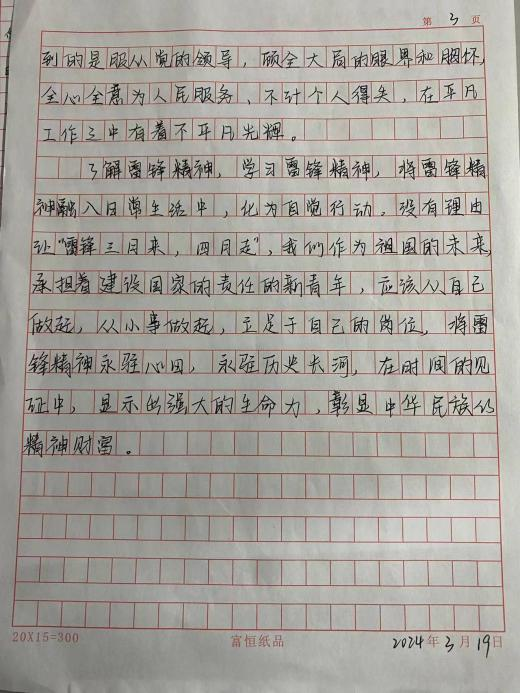 第 3 页
到的是服从党的领导，顾全大局的眼界和胸怀，
全心全意为人民服务、不计个人得失，在平凡
工作之中有着不平凡光辉。
了解雷锋精神，学习雷锋精神，将雷锋精
神融入日常生活中，化为自觉行动。没有理由
让“雷锋三月来，四月走”，我们作为祖国的未来，
承担着建设国家的责任的新青年，应该从自己
做起，从小事做起，立足于自己的岗位，将雷
锋精神永驻心田，永驻历史长河，在时间的见
证中，显示出强大的生命力，彰显中华民族的
精神财富。
20X15=300 富恒纸品 2024年3月19日